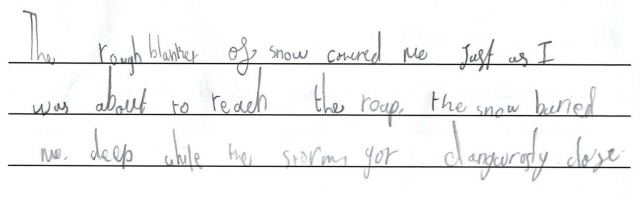 The rough blanket of snow covered me Just as I
was about to reach the roap. the snow buried
me. deep while the storm got dangurosly close.